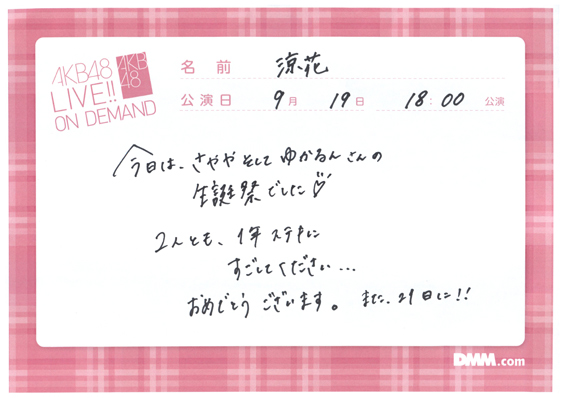 AKB48
LIVE!!
ON DEMAND
AKB
48
名前 涼花
公演日 9月 19日 18:00 公演
今日は、さややそして ゆかるんさんの
生誕祭でした♡
2人とも、1年ステキに
すごしてください…
おめでとうございます。また、29日に!!
DMM.com